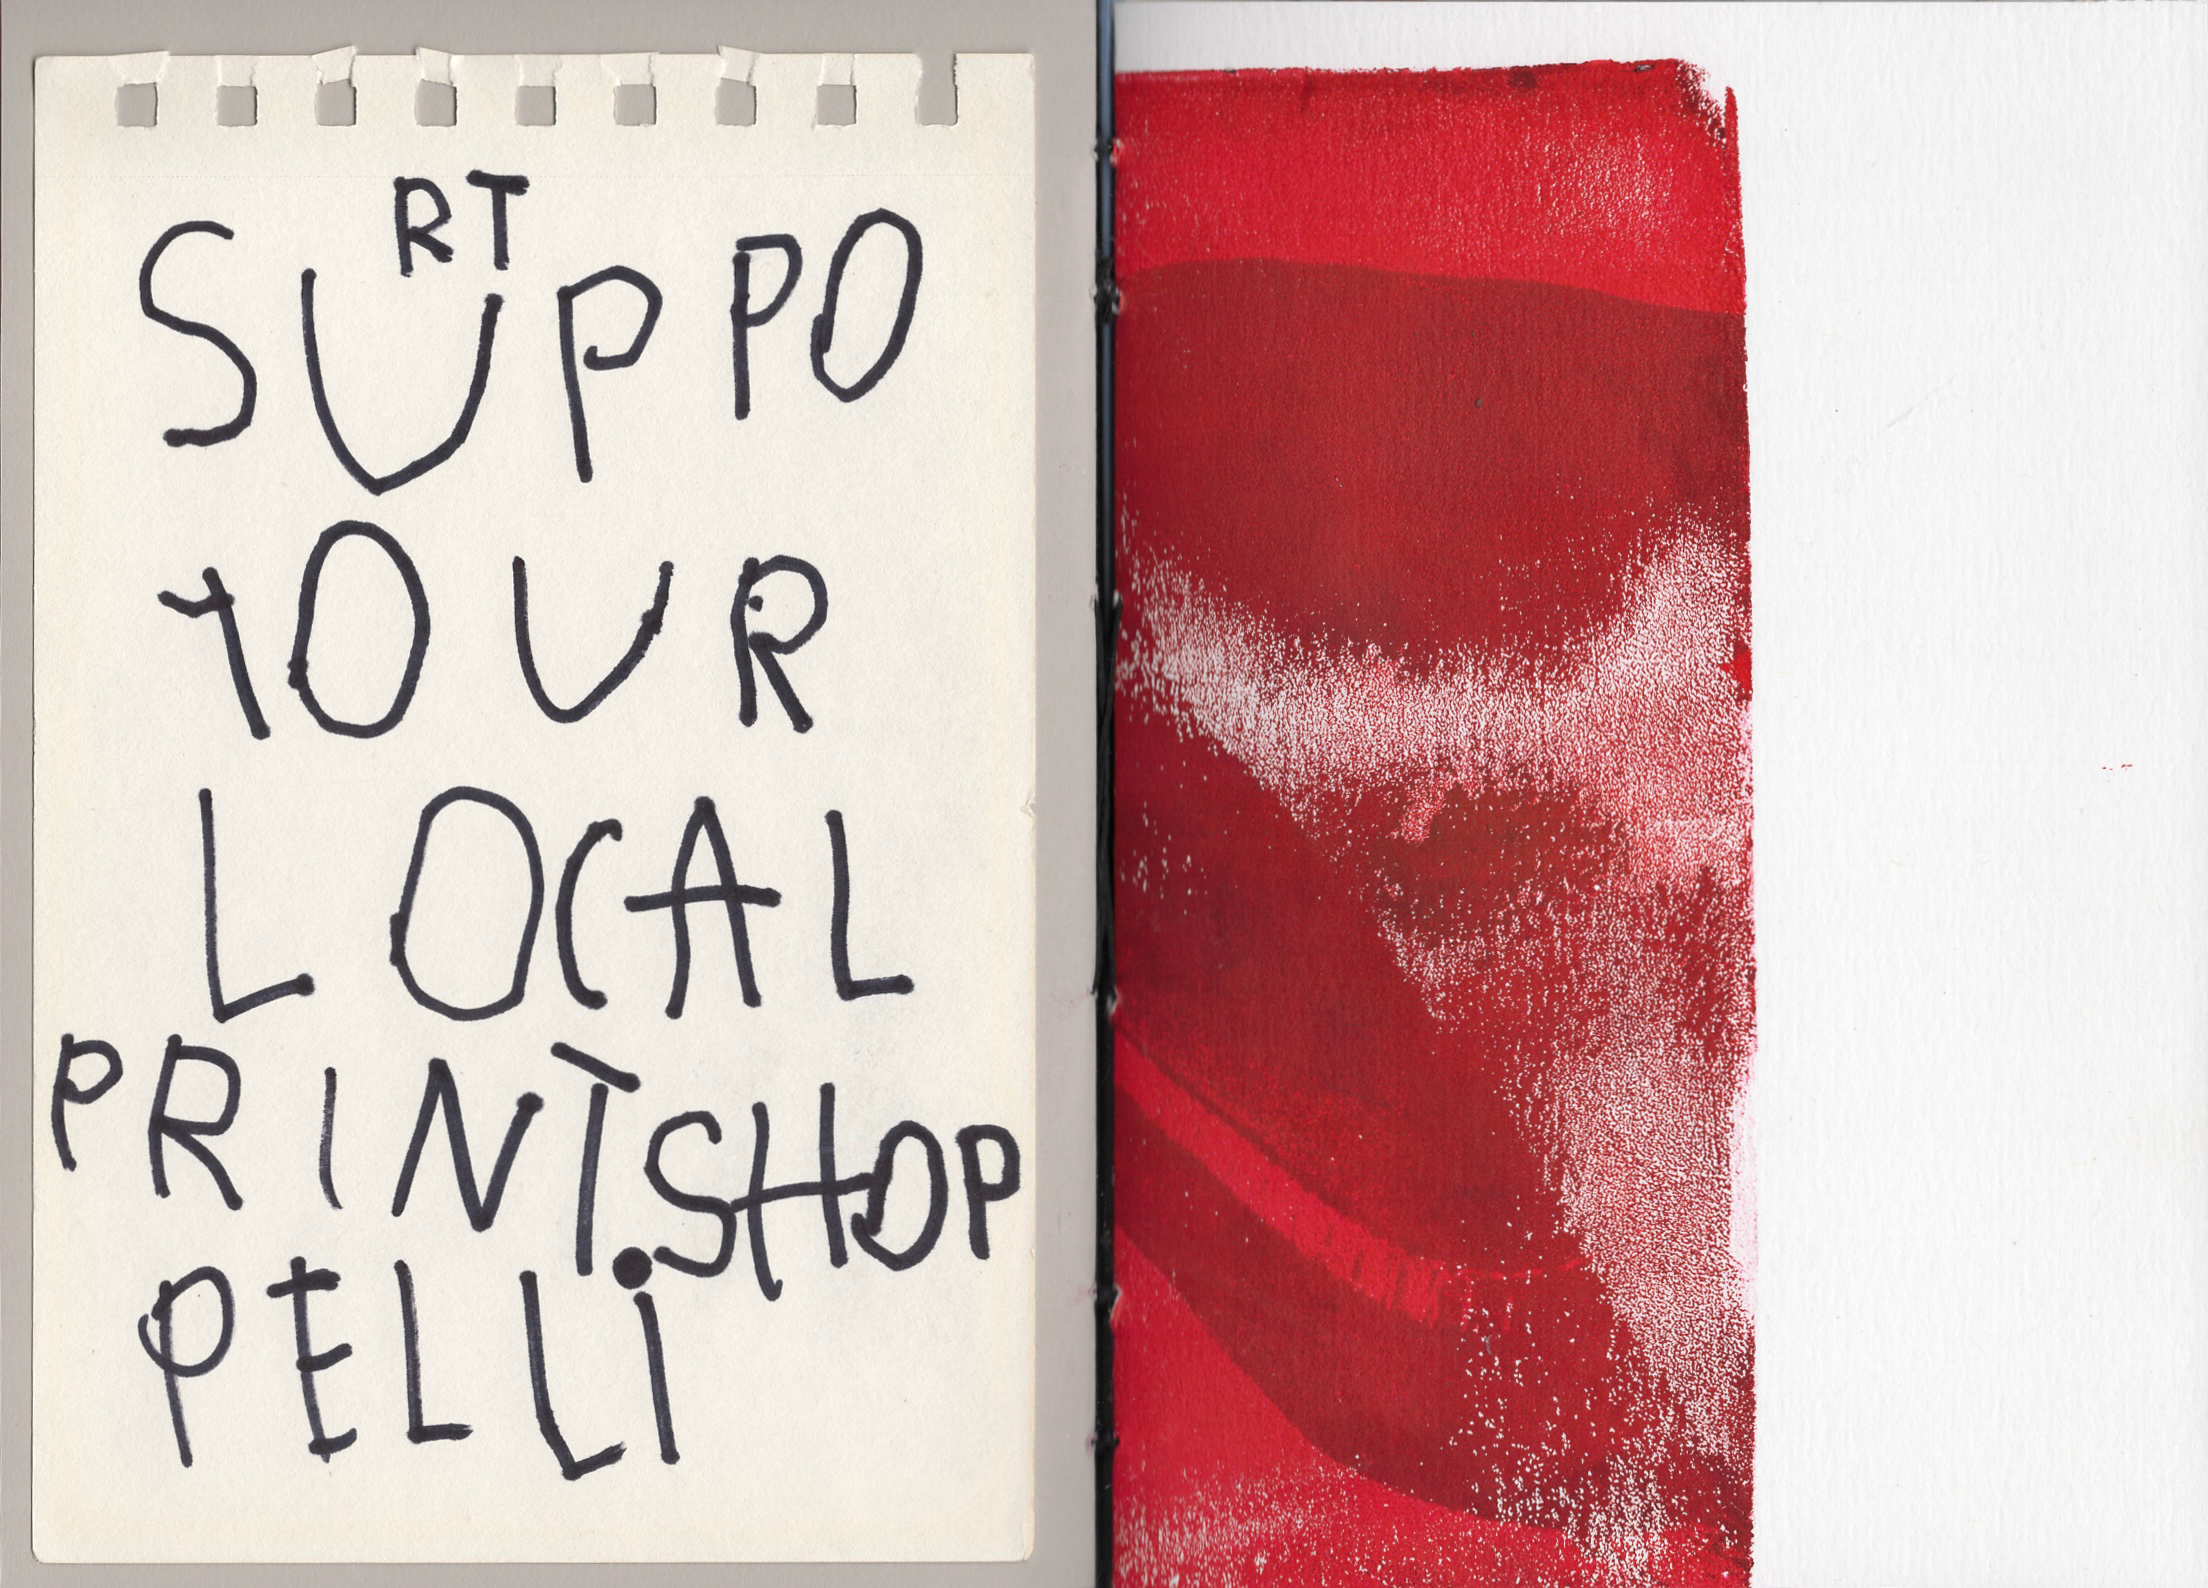 SUPPORT
YOUR
LOCAL
PRINTSHOP
PELLi